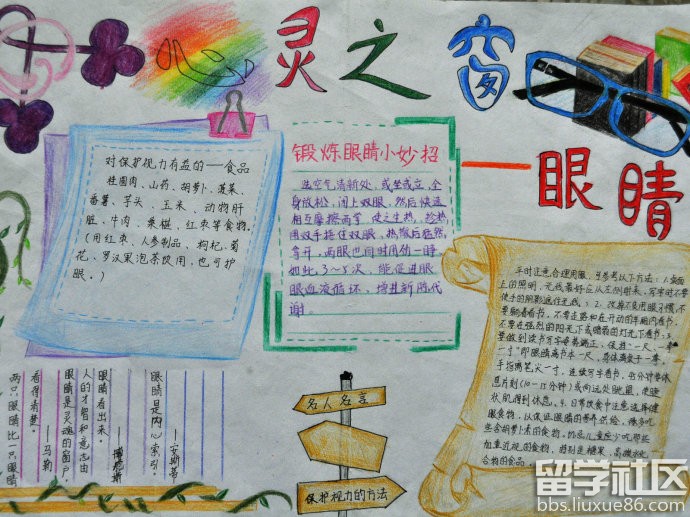 心灵之窗
——眼睛
对保护视力有益的——食品
桂圆肉、山药、胡萝卜、菠菜、
番薯、芋头、玉米、动物肝
脏、牛肉、桑椹、红枣等食物。
(用红枣、人参制品、枸杞、菊
花、罗汉果泡茶饮用,也可护
眼。)
锻炼眼睛小妙招
选空气清新处,或坐或立,全
身放松,闭上双眼,然后快速
相互摩擦两掌,使之生热,趁热
用双手捂住双眼,热散后猛然
拿开,两眼也同时用劲一睁
如此3～5次,能促进眼
眼血液循环,增进新陈代
谢。
平时注意合理用眼,可参考以下方法:1、桌面
上的照明,光线最好应从左侧射来,写字时不要
使手的阴影遮住光线;2、改掉不良用眼习惯,不
要躺着看书,不要走路和在开动的车厢内看书,
不要在强烈的阳光下或暗弱的灯光下看书;3、
要做到读书写字姿势端正,保持"一尺一寸
一寸"即眼睛离书本一尺,身体离桌子一拳,
手指离笔尖一寸,连续写字看书,
息片刻(10-15分钟)或向远处眺望,使眼
状肌得到休息。4、日常饮食中注意选择健
眼食物,以保证眼睛的营养
含胡萝卜素的食物,
加重近视的食物,
合物的食品。
两只眼睛比一只眼睛
看得清楚。
——马勒
眼睛是灵魂的窗户,
人的才智和意志由
眼睛看出来。
眼睛是内心索引。
名人名言
保护视力的方法
留学社区
bbs.liuxue86.com